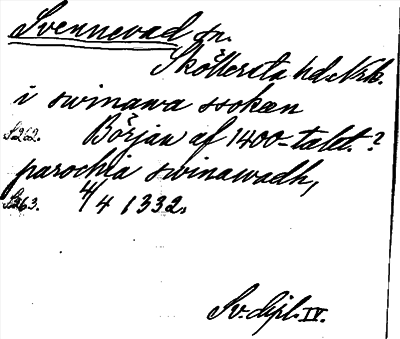 Svennevad sn.
Sköllersta hd. Nrk.
i swinawa sokæn
S262. Början af 1400-talet.?
parochia swinawadh,
S263. 4/4 1332.
Sv. dipl. IV.